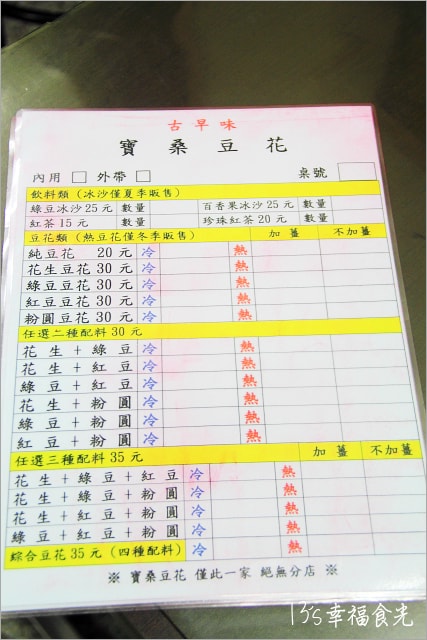 古早味
寶桑豆花
內用 □ 外帶 □ 桌號
飲料類（冰沙僅夏季販售）
綠豆冰沙25元 數量 百香果冰沙25元 數量
紅茶15元 數量 珍珠紅茶20元 數量
豆花類（熱豆花僅冬季販售） 加薑 不加薑
純豆花 20元 冷 熱
花生豆花30元 冷 熱
綠豆豆花30元 冷 熱
紅豆豆花30元 冷 熱
粉圓豆花30元 冷 熱
任選二種配料30元
花生+綠豆 冷 熱
花生+紅豆 冷 熱
綠豆+紅豆 冷 熱
花生+粉圓 冷 熱
綠豆+粉圓 冷 熱
紅豆+粉圓 冷 熱
任選三種配料35元 加薑 不加薑
花生+綠豆+紅豆 冷 熱
花生+綠豆+粉圓 冷 熱
花生+紅豆+粉圓 冷 熱
綠豆+紅豆+粉圓 冷 熱
綜合豆花35元（四種配料） 冷 熱
※ 寶桑豆花 僅此一家 絕無分店 ※
幸福食光